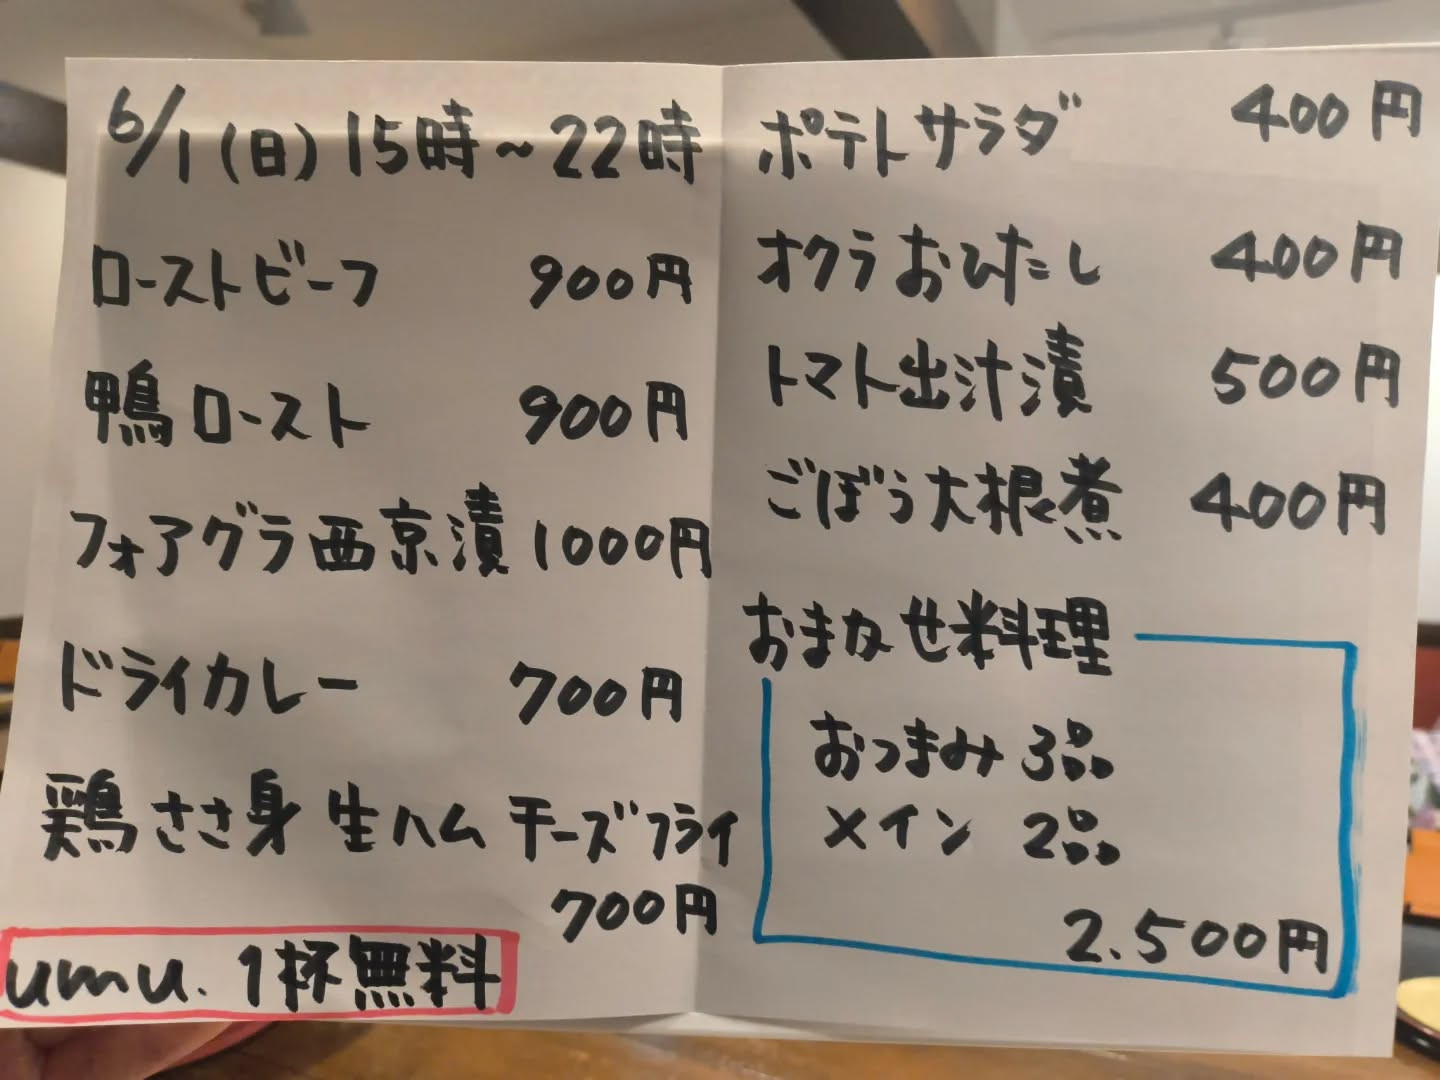 6/1(日)15時~22時
ローストビーフ 900円
鴨ロースト 900円
フォアグラ西京漬 1000円
ドライカレー 700円
鶏ささ身生ハムチーズフライ
700円
umu. 1杯無料
ポテトサラダ 400円
オクラおひたし 400円
トマト出汁漬 500円
ごぼう大根煮 400円
おまかせ料理
おつまみ 3品
メイン 2品
2.500円